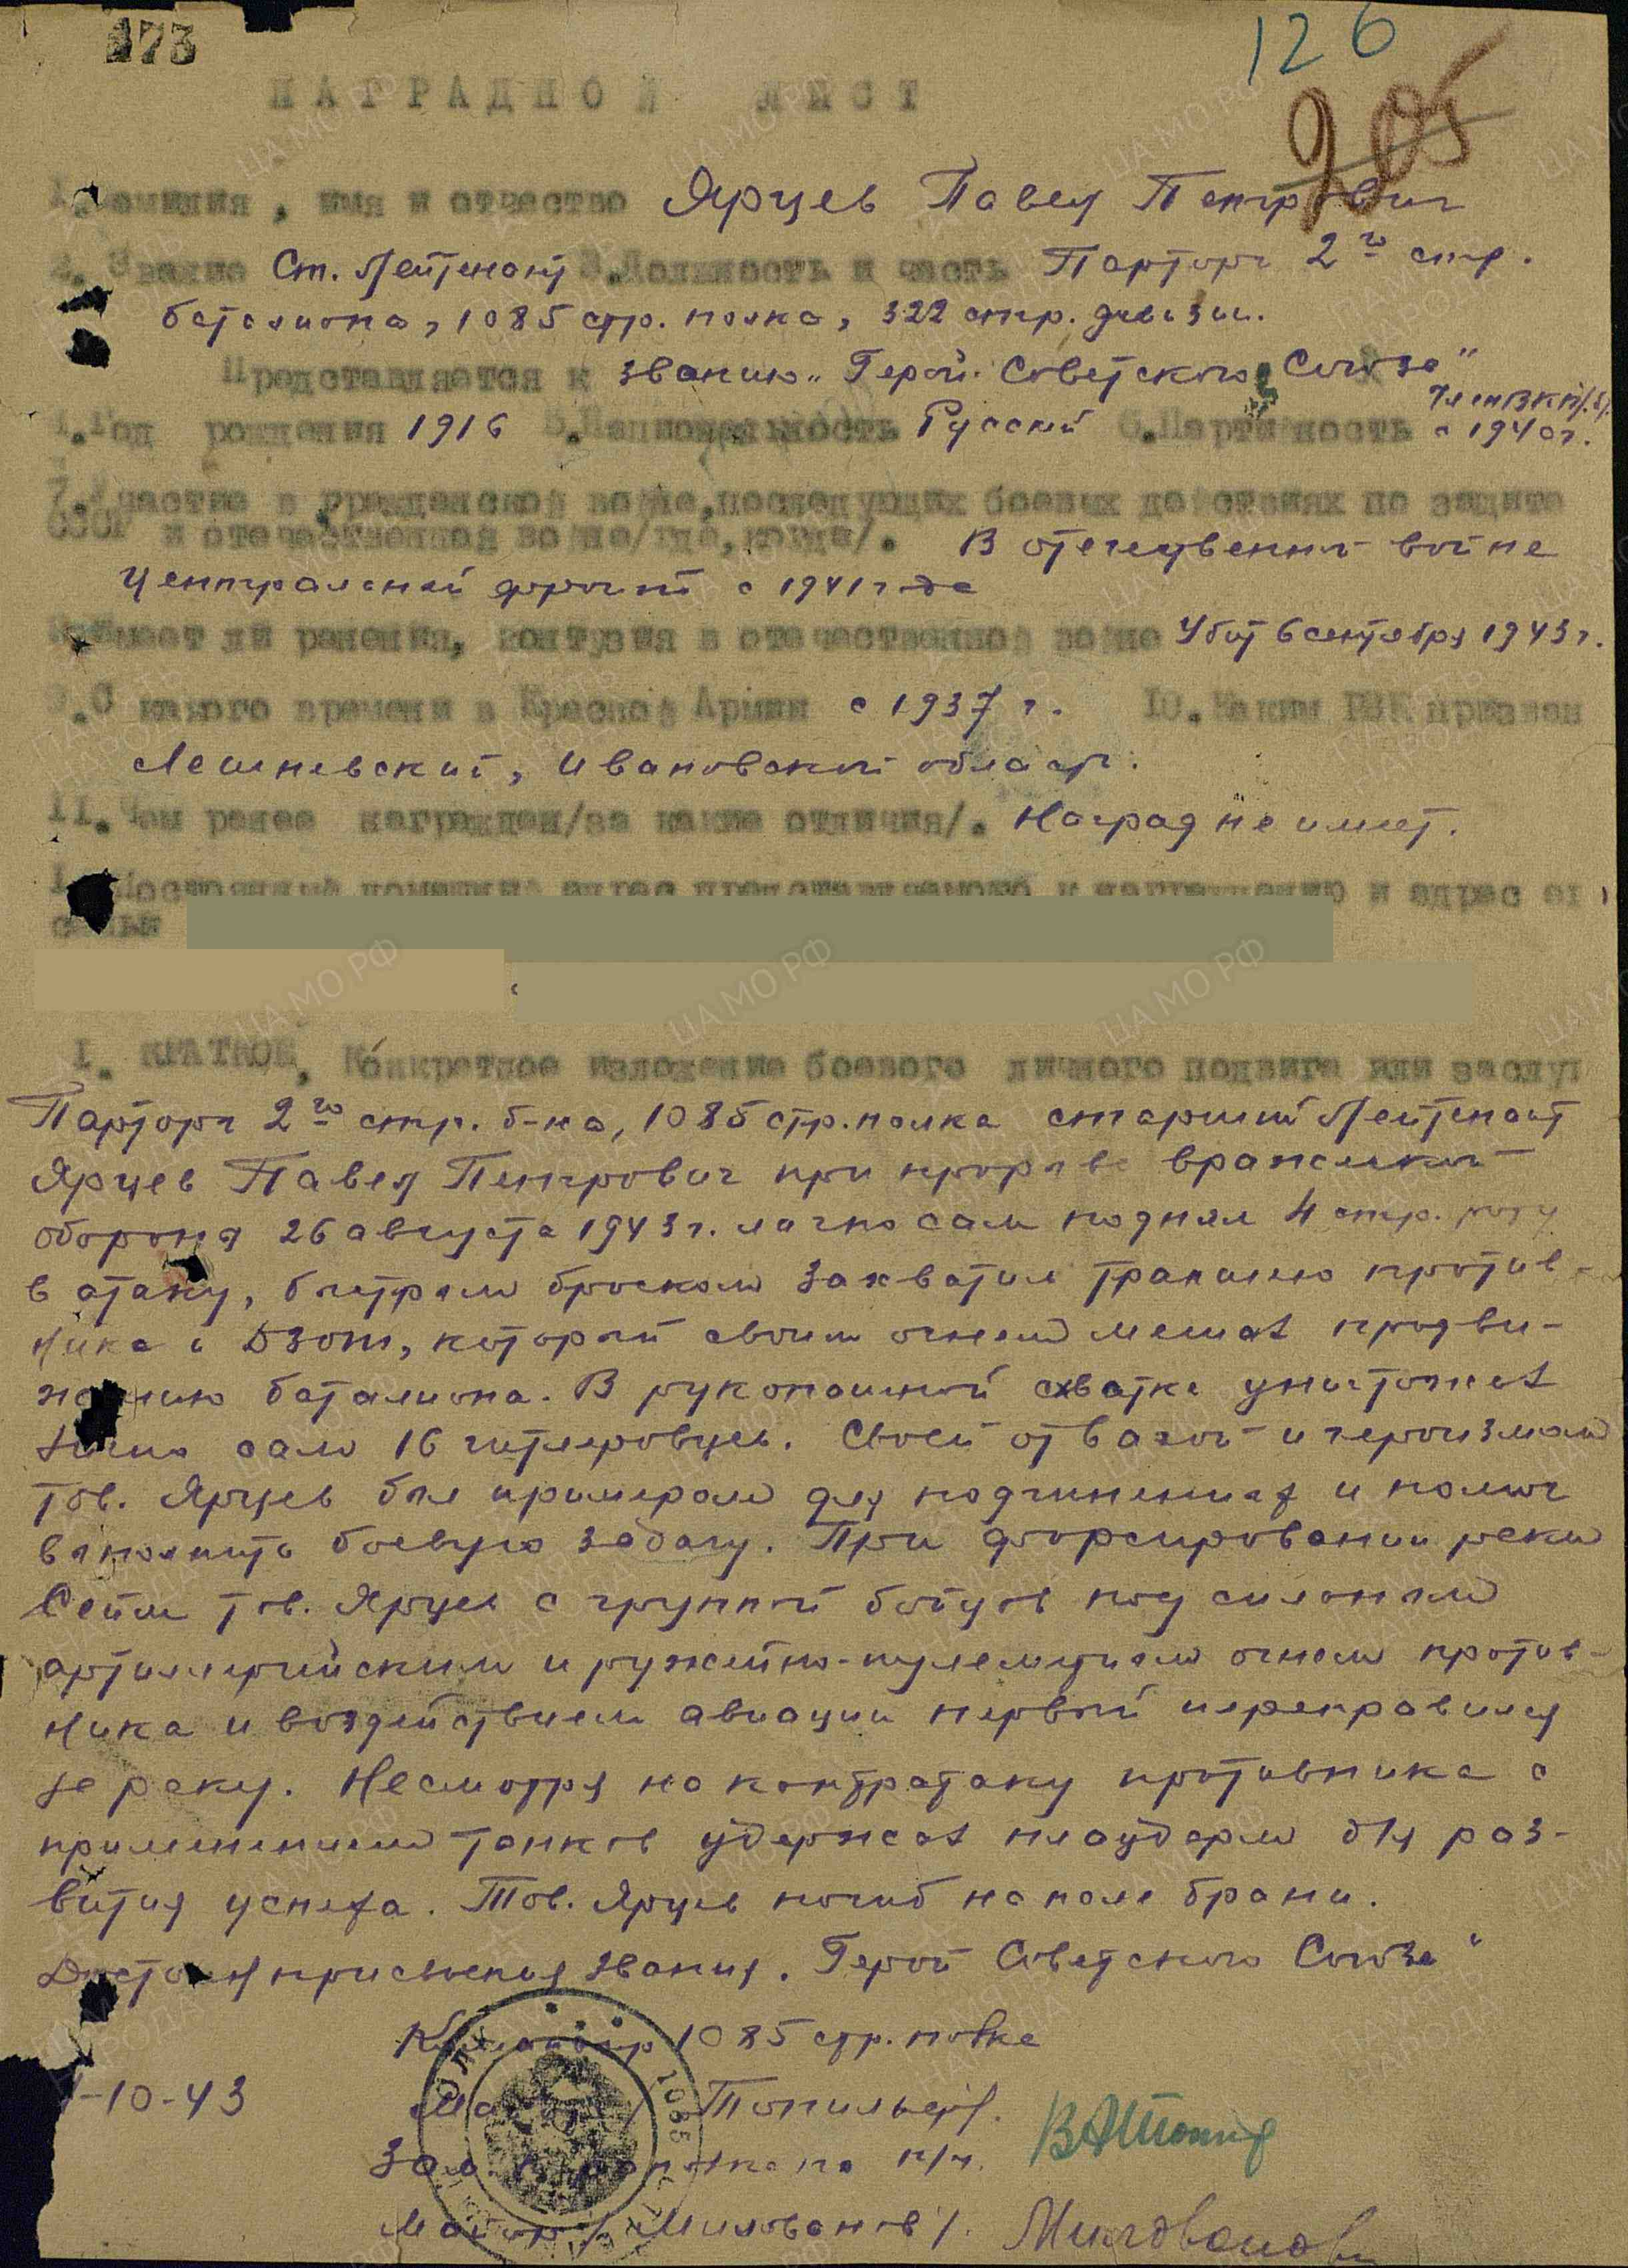 173
126
205
НАГРАДНОЙ ЛИСТ
1. Фамилия, имя и отчество Ярцев Павел Петрович
2. Звание Ст. Лейтенант 3. Должность и часть Парторг 2го стр.
баталиона, 1085 стр. полка, 322 стр. дивизии.
Представляется к званию „Герой Советского Союза"
Член ВКП/б/.
4. Год рождения 1916 5. Национальность Русский 6. Партийность с 1940 г.
7. Участие в гражданской войне, последующих боевых действиях по защите
СССР и отечественной войне/где, когда/. В отечественной войне
Центральный фронт с 1941 года
8. Имеет ли ранения, контузия в отечественной войне Убит 6 сентября 1943 г.
9. С какого времени в Красной Армии с 1937 г. 10. Каким РВК призван
Лешневский, Ивановской област.
11. Чем ранее награжден/за какие отличия/. Наград не имеет.
1 Постоянный домашний адрес представляемого к награждению и адрес ег
семьи
I. КРАТКОЕ, Конкретное изложение боевого личного подвига или заслуг
Парторг 2го стр. б-на, 1085 стр. полка старший Лейтенант
Ярцев Павел Петрович при прорыве вражеской
обороны 26 августа 1943 г. лично сам поднял 4 стр. роту
в атаку, быстрым броском захватил траншею против-
ника и ДЗОТ, который своим огнем мешал продви-
жению баталиона. В рукопашной схватке уничтожил
лично сам 16 гитлеровцев. Своей отвагой и героизмом
тов. Ярцев был примером для подчиненных и помог
выполнить боевую задачу. При форсировании реки
Сейм тов. Ярцев с группой бойцов под сильным
артиллерийским и ружейно-пулеметным огнем против-
ника и воздействием авиации первый переправился
за реку. Несмотря на контратаку противника с
применением танков удержал плацдарм для раз-
вития успеха. Тов. Ярцев погиб на поле брани.
Достоин присвоения звания „Герой Советского Союза"
Командир 1085 стр. полка
-10-43 Майор / Топильер/.
Зам. ком. полка по п/ч.
Майор / Милованов /. Милованов
1085